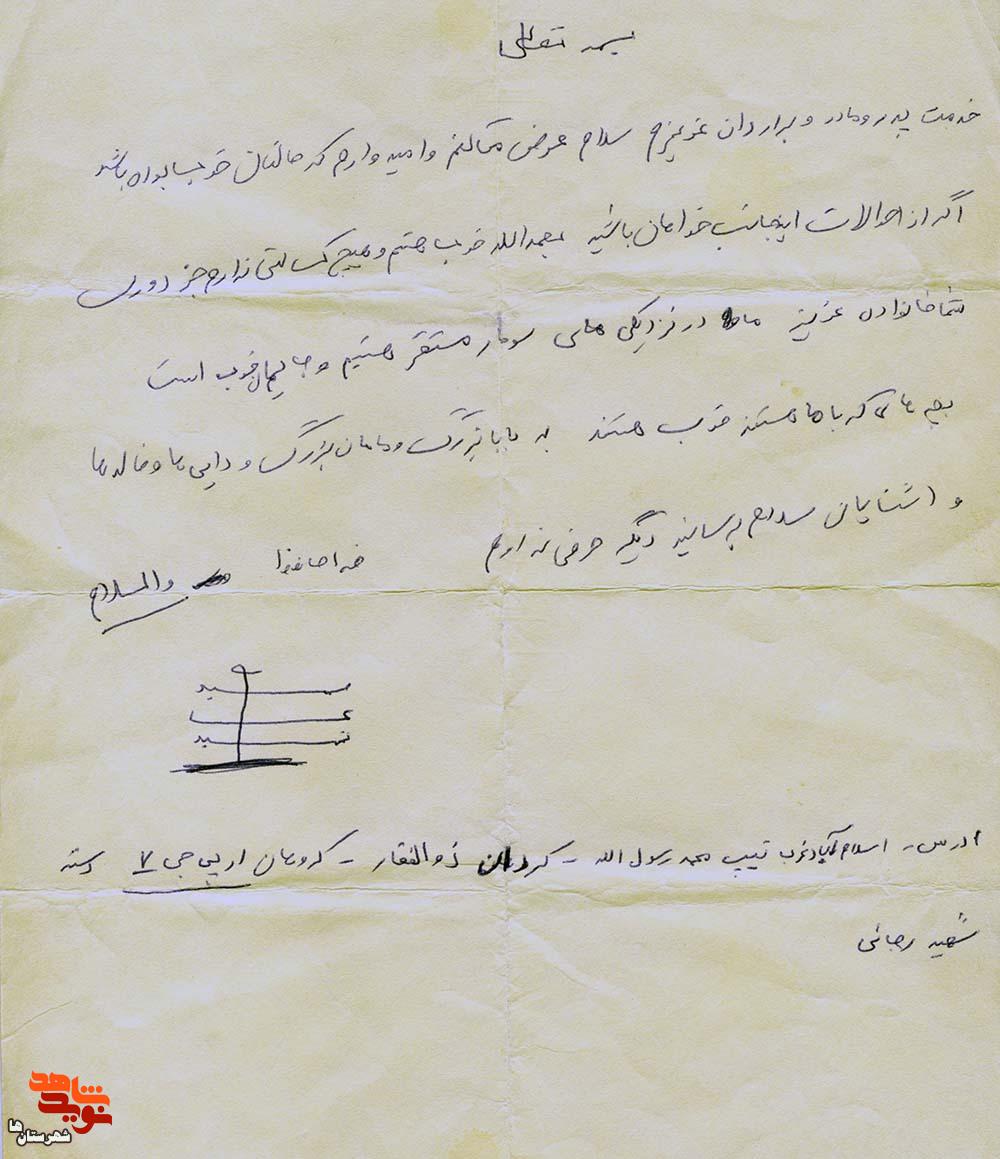 بسمه تعالی
خدمت پدر و مادر و برادران عزیزم سلام عرض میکنم و امید وارم که حالتان خوب بوده باشد
اگر از احوالات اینجانب خواهان باشید بحمدالله خوب هستم و هیچ کسالتی ندارم جز دوری
شما خانواده عزیز ما در نزدیکی های سومار مستقر هستیم و جایمان خوب است
بچه های که با ما هستند خوب هستند به بابابزرگ و مامان بزرگ و دایی ها و خاله ها
و اشنایان سلام برسانید دیگر حرفی ندارم
خداحافظ والسلام
ادرس - اسلام آباد غرب تیپ محمد رسول الله - گردان ذوالفقار - گروهان ارپی جی ۷ دسته
شهید رجائی
نوید شاهد
شهرستان ها